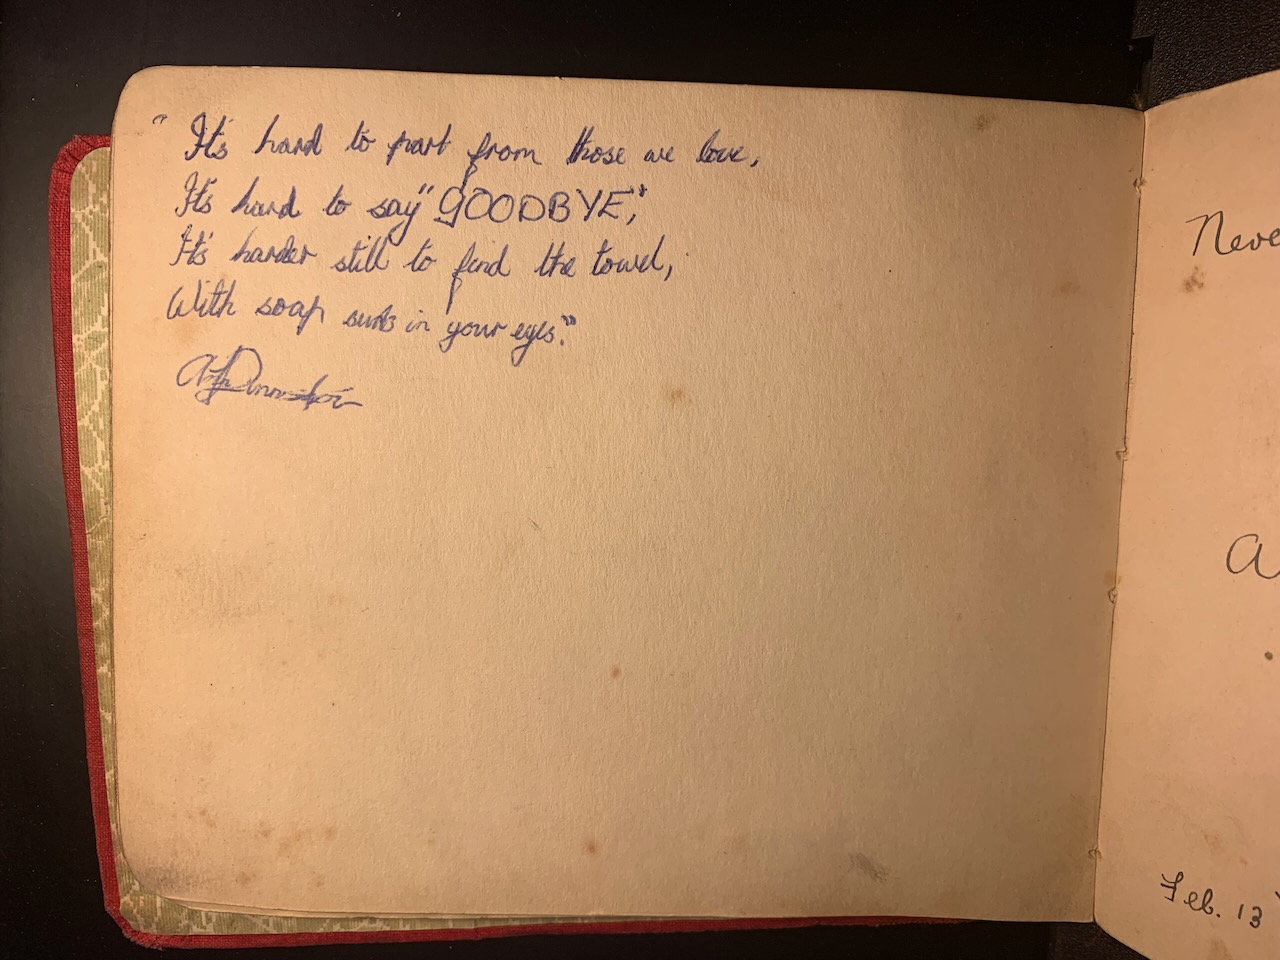 "It's hard to part from those we love,
It's hard to say "GOODBYE",
It's harder still to find the towel,
With soap suds in your eyes."
Neve
a
Feb. 13